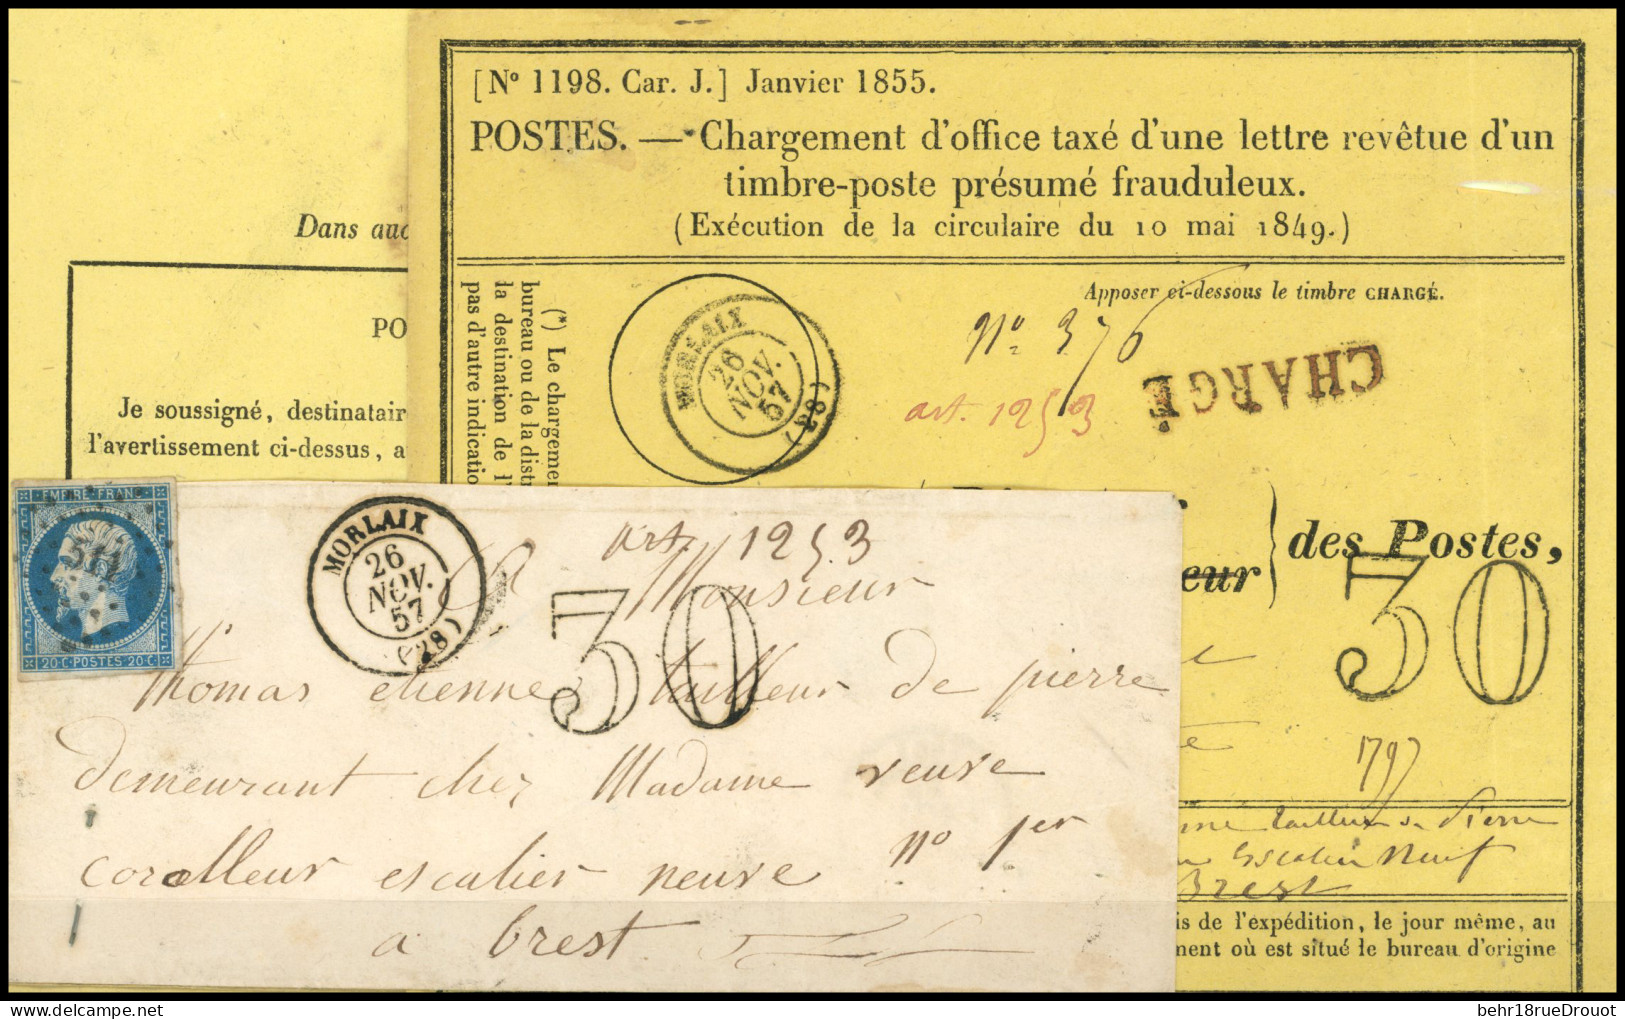 [N° 1198. Car. J.] Janvier 1855.
POSTES. — Chargement d'office taxé d'une lettre revêtue d'un
timbre-poste présumé frauduleux.
(Exécution de la circulaire du 10 mai 1849.)
Dans auc
PO
Je soussigné, destinatair
l'avertissement ci-dessus, a
(*) Le chargeme
bureau ou de la distr
la destination de l'
pas d'autre indicatio
MORLAIX
26
NOV.
57
(28)
Apposer ci-dessous le timbre CHARGÉ.
N° 376
art. 1253
CHARGÉ
des Postes,
eur
30
1797
Tailleur de Pierre
Escalier Neuf
Brest
is de l'expédition, le jour même, au
ment où est situé le bureau d'origine
EMPIRE FRANC
20 C. POSTES 20 C.
MORLAIX
26
NOV.
57
(28)
art. 1253
30
A Monsieur
Thomas etienne tailleur de pierre
demeurant chez Madame veuve
coralleur escalier neuve n° 1er
a brest
behr18rueDrouot